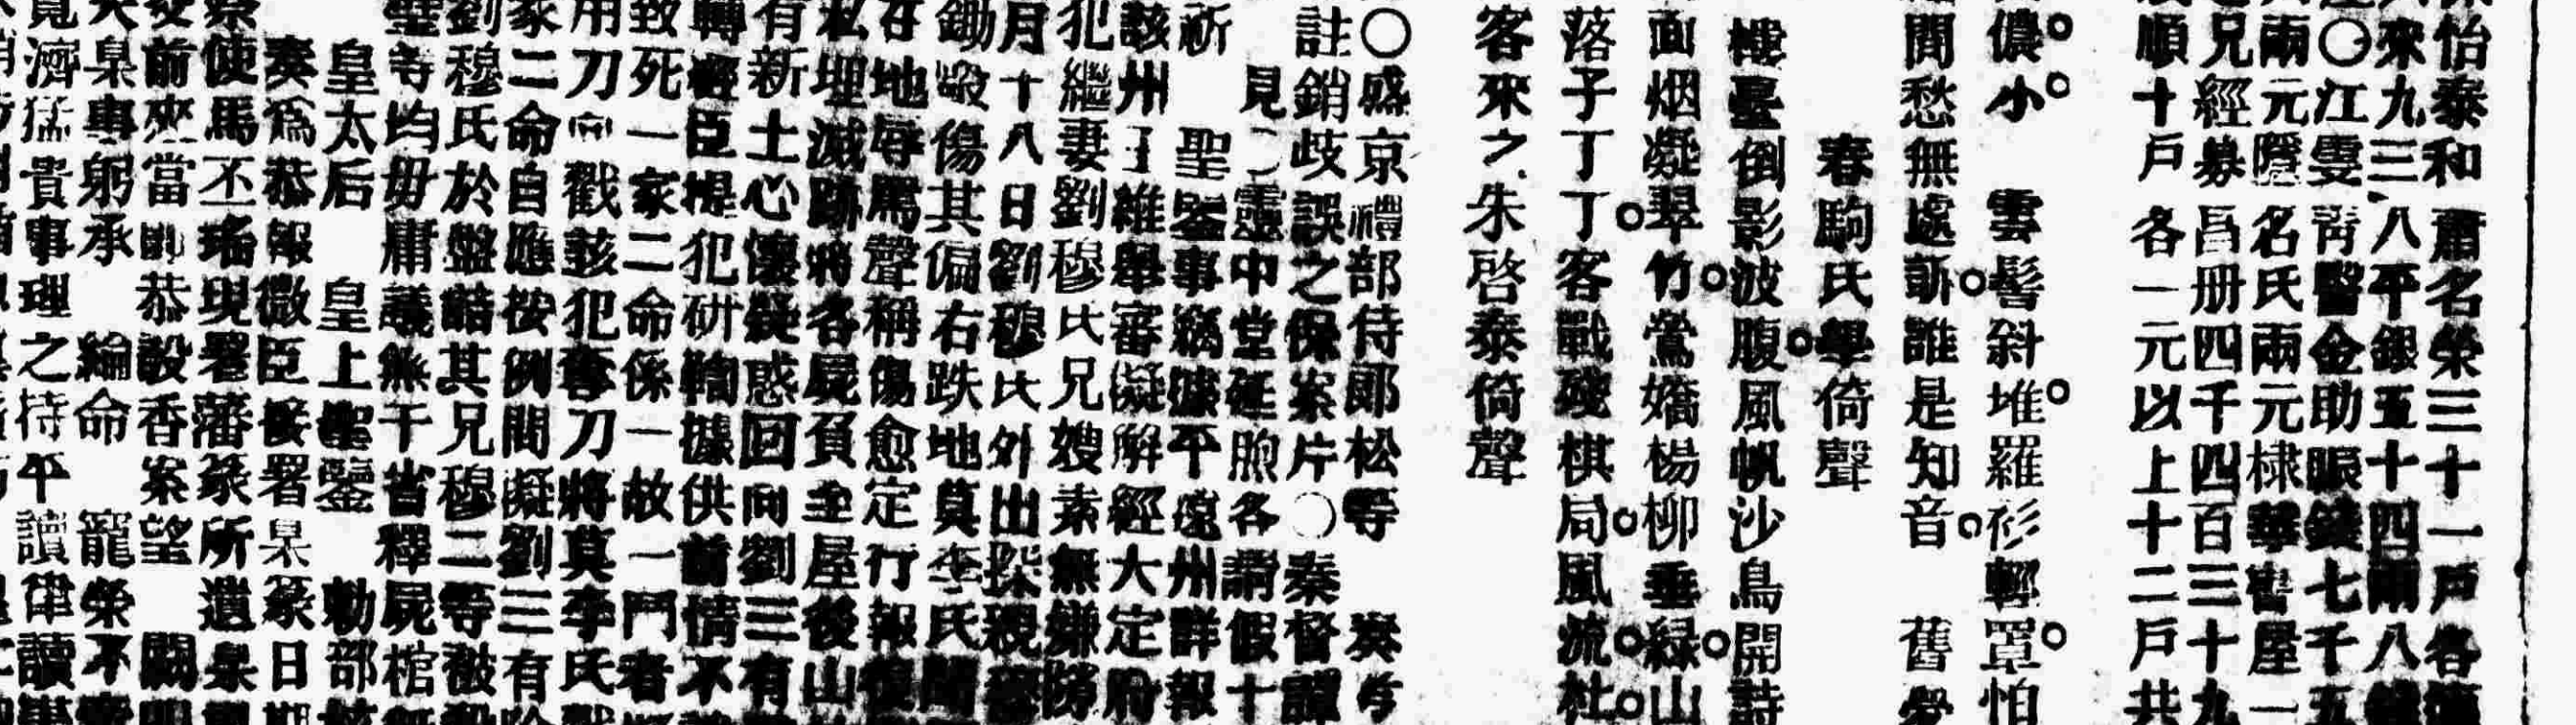 怡泰和 肅名榮三十一戶各
來九三八平銀五十四兩八錢
〇江雯靑醫金助賑錢七千五
兩元隱名氏兩元棣華書屋一
兄經募昌册四千四百三十九
順十戶各一元以上十二戶共
儂小 雲髻斜堆羅衫輕罩怕
閒愁無處訴誰是知音 舊愛
春駒氏學倚聲
樓臺倒影波腹風帆沙鳥開詩
面烟凝翠竹鶯嬌楊柳垂綠山
落子丁丁客戰殘棋局風流杜
客來之 朱啓泰倚聲
〇盛京禮部侍郎松等 奏
註銷歧誤之保案片〇秦督譚
見 靈中堂延煦各請假十
祈 聖鑒事竊據平遠州詳報
該州 王維舉審擬解經大定府
犯繼妻劉穆氏兄嫂素無嫌隙
月十八日劉穆氏外出探親
鋤毆傷其偏右跌地莫李氏聞
在地辱罵聲稱傷愈定行報復
私埋滅跡將各屍負至屋後山
有新土心懷疑惑回向劉三有
轉經臣提犯研鞫據供前情不
致死一家二命係一故一鬥者
用刀 戳該犯奪刀將莫李氏
家二命自應按例問擬劉三有
劉穆氏於盤詰其兄穆二等被
等均毋庸議無干省釋屍棺
皇太后 皇上聖鑒 勅部
奏爲恭報微臣接署臬篆日期
使馬丕瑤現署藩篆所遺臬
前來當卽恭設香案望 闕
臬事躬承 綸命 寵榮不
濟猛貴事理之持平讀律讀